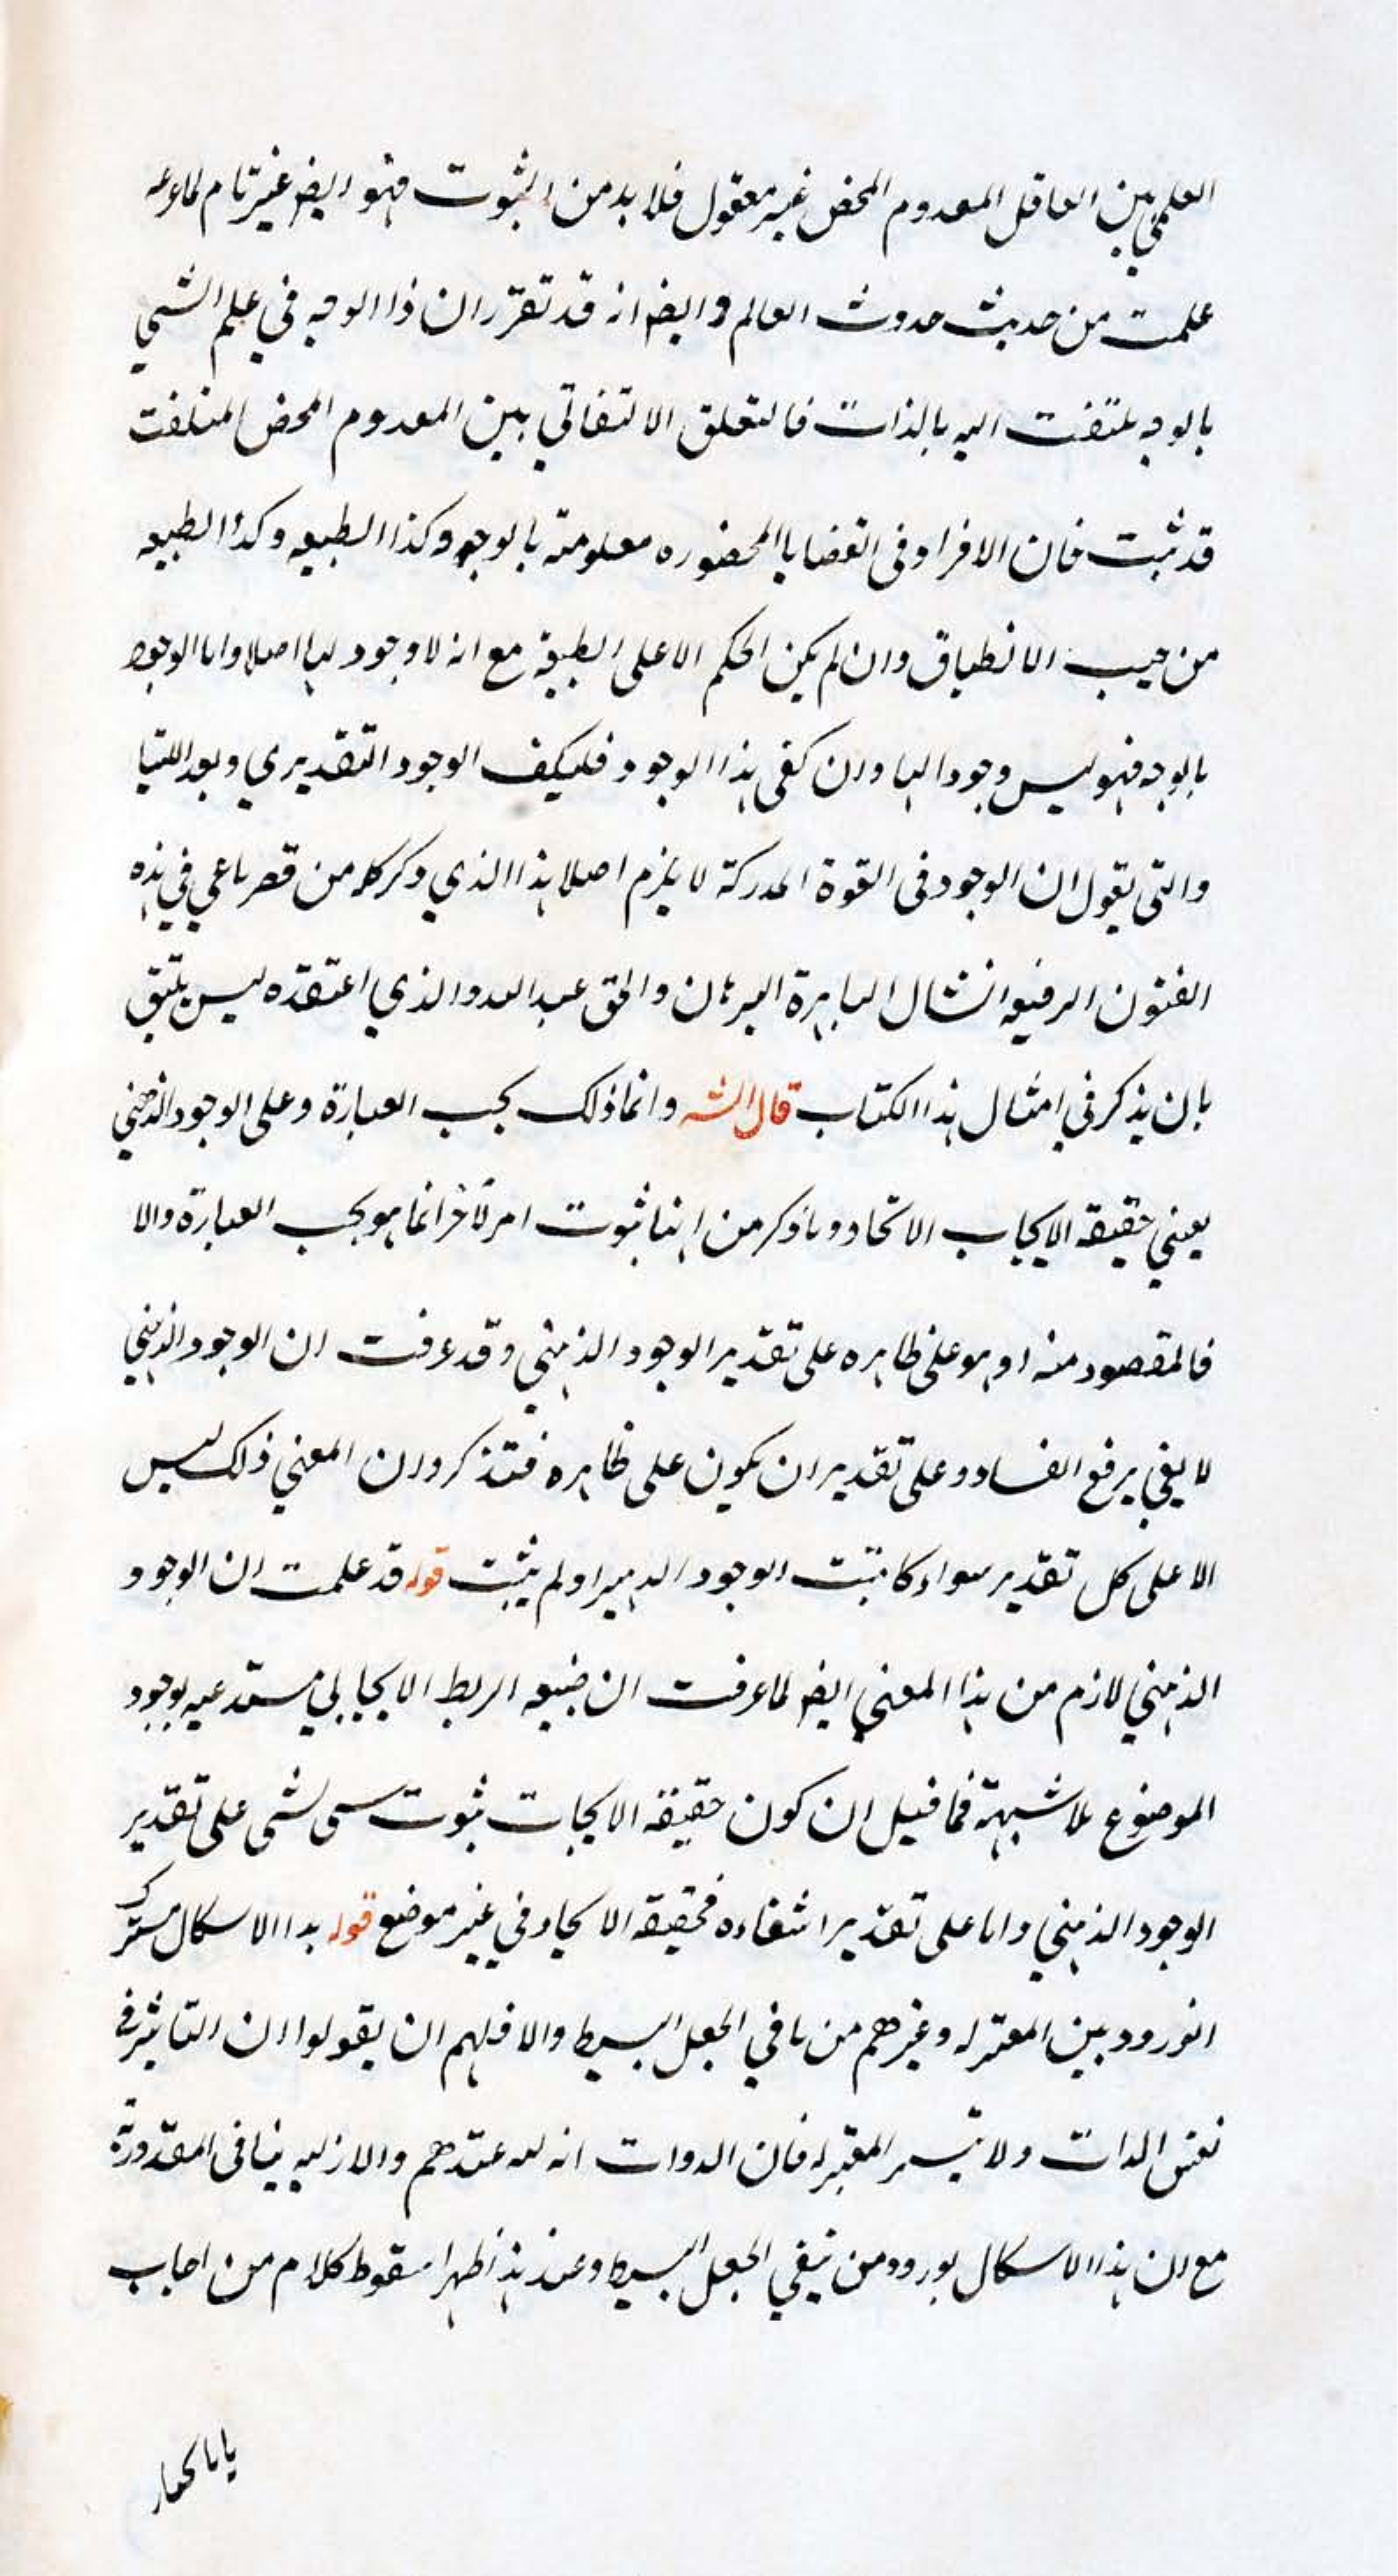 العلمي بين العاقل المعدوم المحض غير معقول فلا بد من الثبوت فهو ايضا غير تام لما
علمت من حديث حدوث العالم وايضا انه قد تقرر ان ذا الوجه في علم الشي
بالوجه ملتفت اليه بالذات فالتعلق الالتفاتي بين المعدوم المحض الملتفت
قد ثبت فان الافراد في القضايا المحضوره معلومته بالوجه وكذا الطبيعه وكذا الطبيعه
من حيث الانطباق وان لم يكن الحكم الا على الطبيعة مع انه لا وجود لها اصلا واما الوجود
بالوجه فهو ليس وجودا لها وان كفى هذا الوجود فليكف الوجود التقديري وبعد اللتيا
والتي يقول ان الوجود في القوة المدركة لا يلزم اصلا هذا الذي ذكر كله من قصر باعي في هذه
الفنون الرفيعه البرهان والحق عند الله والذي اعتقده ليس يليق
بان يذكر في امثال هذا الكتاب قال الشه وانما ذلك بحسب العبارة وعلى الوجود الذهني
يعني حقيقه الايجاب الاتحاد وما ذكر من انها ثبوت امر لآخر انما هو بحسب العبارة والا
فالمقصود منه او هو على ظاهره على تقدير الوجود الذهني وقد عرفت ان الوجود الذهني
لا يفي برفع الفساد وعلى تقدير ان يكون على ظاهره فتذكر وان المعني ذلك ليس
الا على كل تقدير سواء كا ثبت الوجود او لم يثبت قوله قد علمت ان الوجود
الذهني لازم من هذا المعني ايضا لما عرفت ان الربط الايجابي مستدعيه بوجود
الموضوع بلا شبهة فما قيل ان كون حقيقه الايجاب ثبوت شي لشي على تقدير
الوجود الذهني واما على تقدير انتفاءه فحقيقه الاتحاد في غير موضع قوله هذا الاسكال مشترك
الورود بين المعتزله وغيرهم من نافي الجعل البسيط والا فلهم ان يقولوا ان التاثير في
نفس الذات ولا المعتزله فان الذوات عندهم والازليه ينافي المقدورية
مع ان هذا الاسكال يورود من نفي الجعل البسيط وعند هذا ظهر سقوط كلام من اجاب